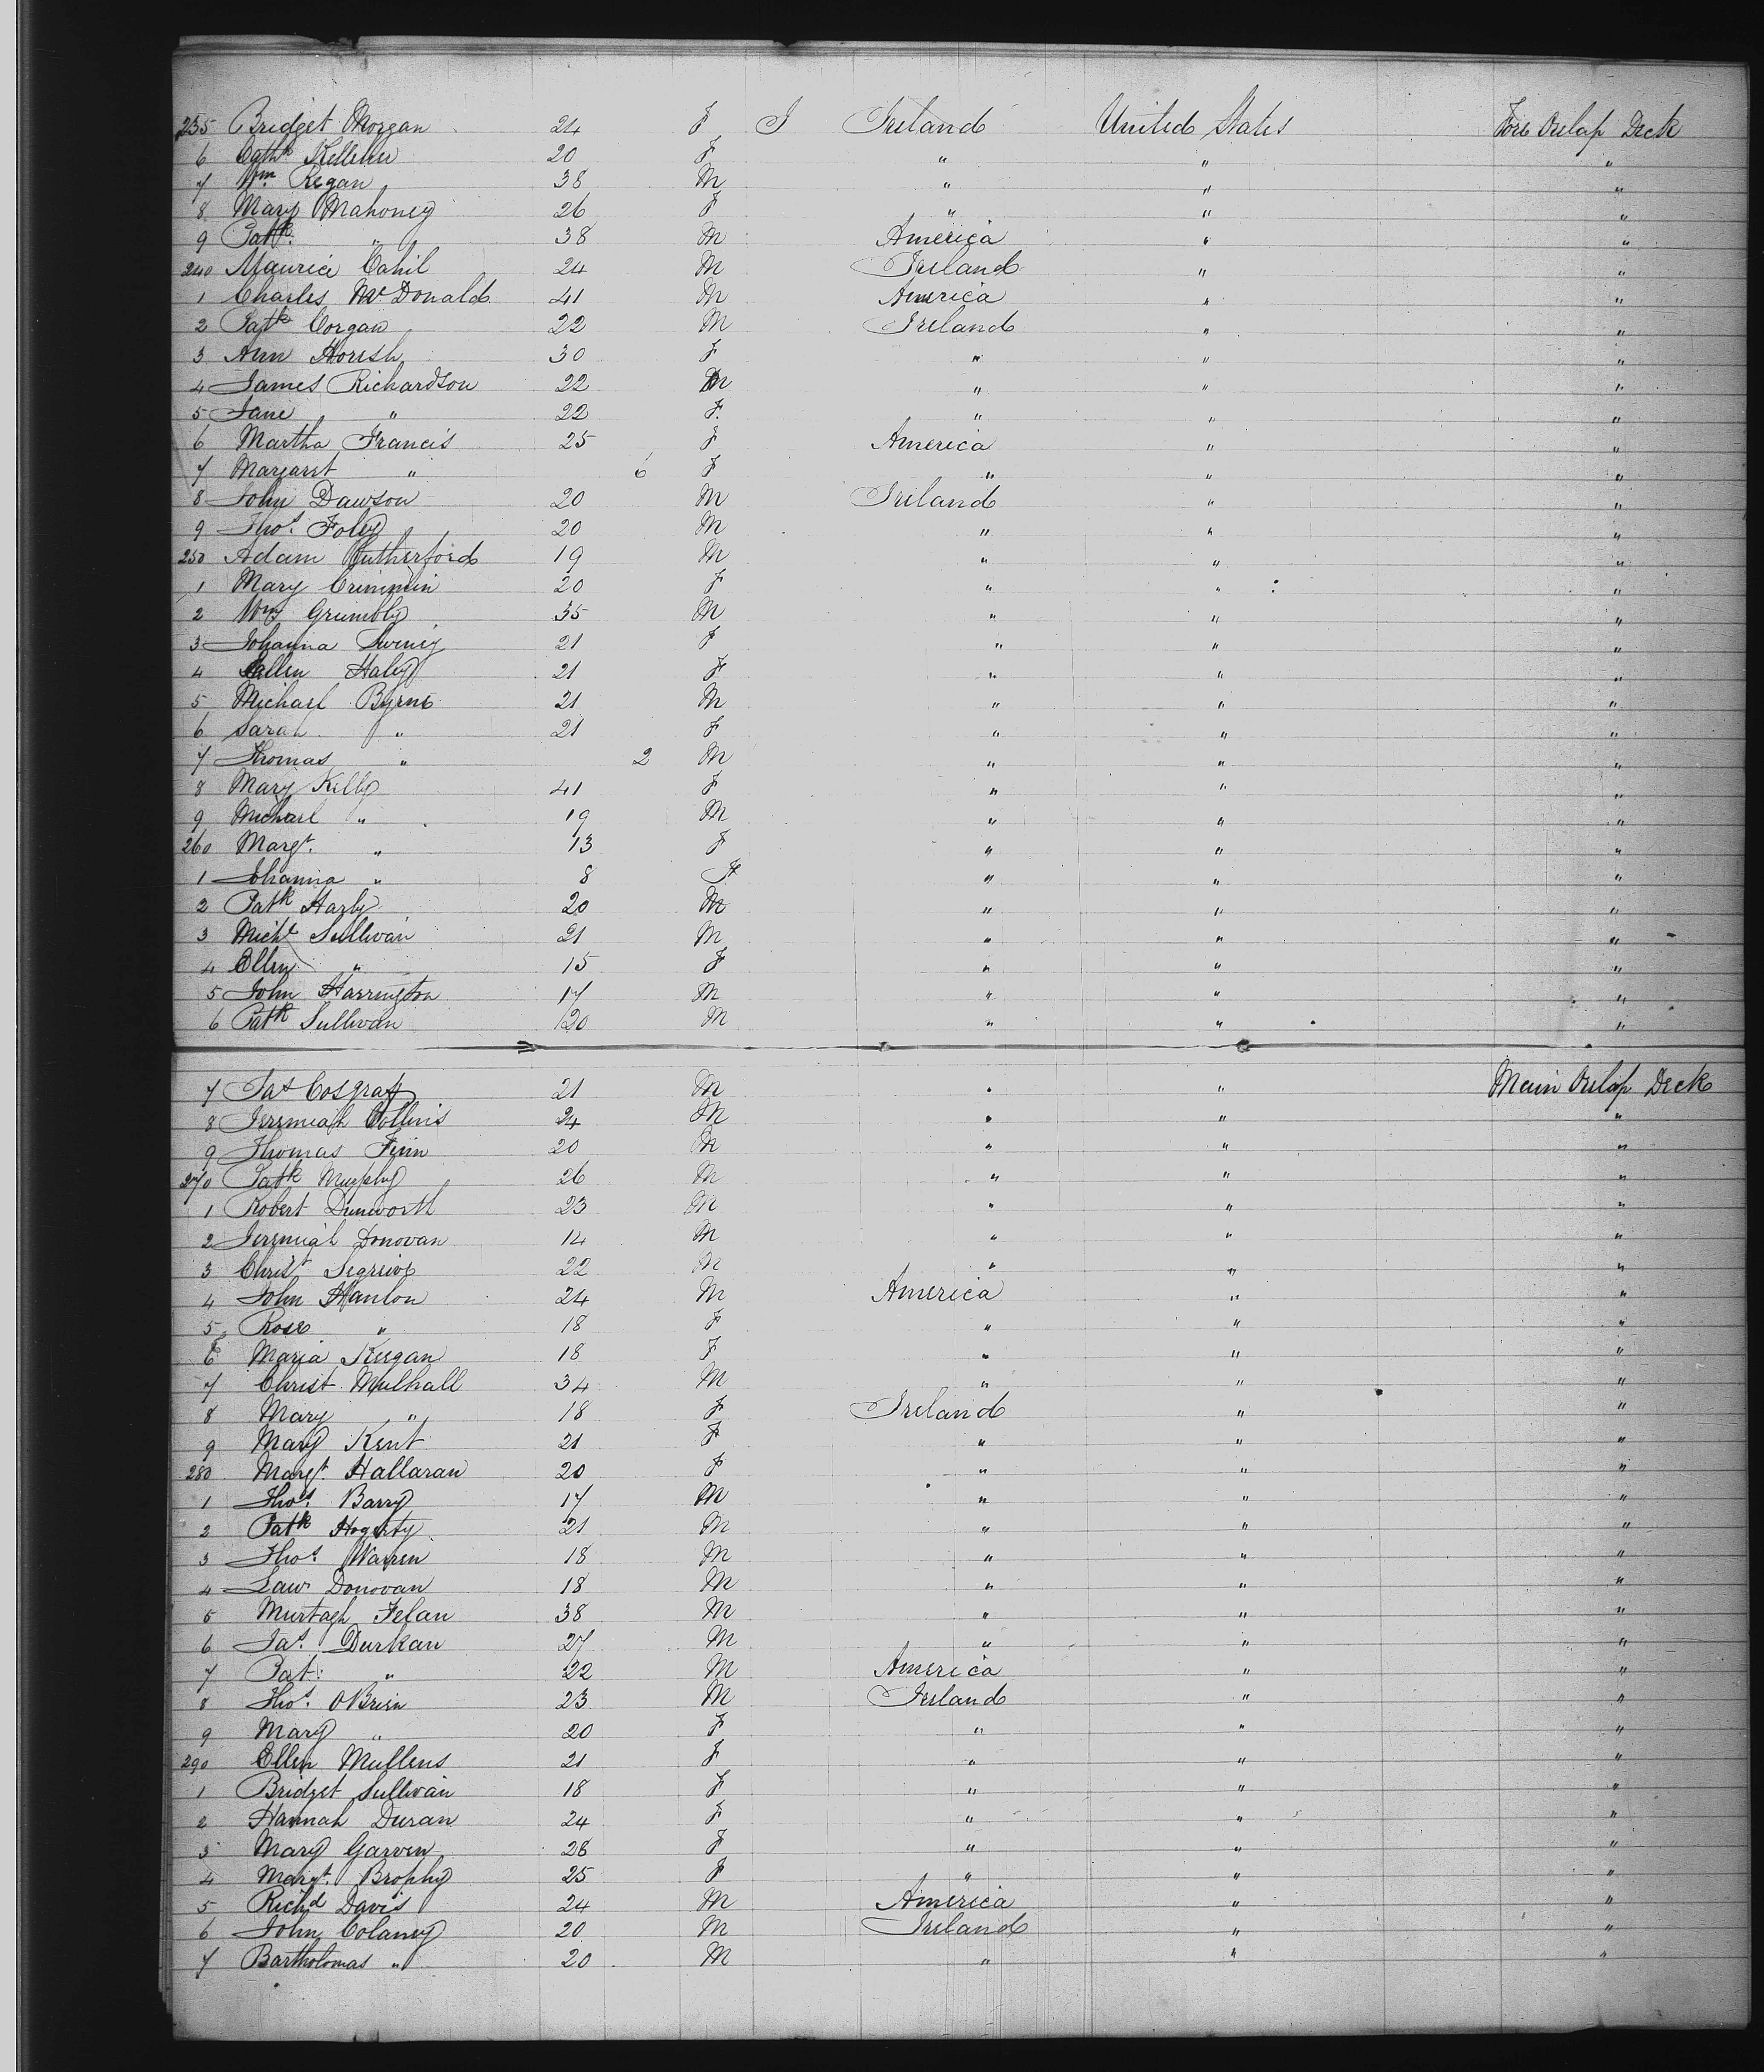 235 Bridget Morgan 24 F I Ireland United States Fore Orlop Deck
6 Cathe Kelleher 20 F " " "
7 Wm. Regan 38 M " " "
8 Mary Mahoney 26 F " " "
9 Patk. " 38 M America " "
240 Maurice Cahil 24 M Ireland " "
1 Charles McDonald 41 M America " "
2 Patk Corgan 22 M Ireland " "
3 Ann Horish 30 F " " "
4 James Richardson 22 M " " "
5 Jane " 22 F " " "
6 Martha Francis 25 F America " "
7 Margaret " 6 F " " "
8 John Dawson 20 M Ireland " "
9 Thos. Foley 20 M " " "
250 Adam Rutherford 19 M " " "
1 Mary Crimmin 20 F " " "
2 Wm Grumbly 35 M " " "
3 Johanna Swiney 21 F " " "
4 Ellen Haley 21 F " " "
5 Michael Byrne 21 M " " "
6 Sarah " 21 F " " "
7 Thomas " 2 M " " "
8 Mary Kelly 41 F " " "
9 Michael " 19 M " " "
260 Margt. " 13 F " " "
1 Johanna " 8 F " " "
2 Patk Harly 20 M " " "
3 Michl Sullivan 21 M " " "
4 Ellen " 15 F " " "
5 John Harrington 17 M " " "
6 Patk Sullivan 20 M " " "
7 Jas Cosgraf 21 M " " Main Orlop Deck
8 Jeremiah Collins 24 M " " "
9 Thomas Finn 20 M " " "
270 Patk Murphy 26 M " " "
1 Robert Dunworth 23 M " " "
2 Jeremiah Donovan 14 M " " "
3 Christ Segreive 22 M " " "
4 John Hanlon 24 M America " "
5 Rose " 18 F " " "
6 Maria Keegan 18 F " " "
7 Christ Mulhall 34 M " " "
8 Mary " 18 F Ireland " "
9 Mary Kent 21 F " " "
280 Margt. Hallaran 20 F " " "
1 Thos. Barry 17 M " " "
2 Patk Hogerty 21 M " " "
3 Thos. Warren 18 M " " "
4 Law Donovan 18 M " " "
5 Murtagh Felan 38 M " " "
6 Jas. Durkan 27 M " " "
7 Pat: " 22 M America " "
8 Thos. OBrien 23 M Ireland " "
9 Mary " 20 F " " "
290 Ellen Mullens 21 F " " "
1 Bridget Sullivan 18 F " " "
2 Hannah Duran 24 F " " "
3 Mary Garven 28 F " " "
4 Margt. Brophy 25 F " " "
5 Richd Davis 24 M America " "
6 John Colaney 20 M Ireland " "
7 Bartholomas " 20 M " " "